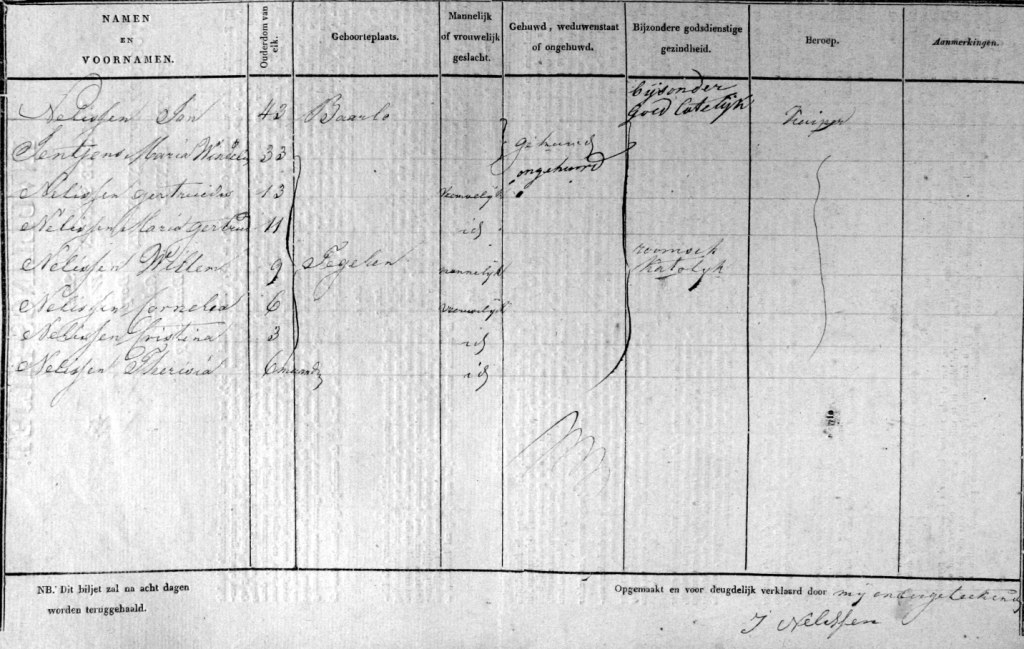 NAMEN EN VOORNAMEN. Ouderdom van elk. Geboorteplaats. Mannelijk of vrouwelijk geslacht. Gehuwd, weduwenstaat of ongehuwd. Bijzondere godsdienstige gezindheid. Beroep. Aanmerkingen.
bijsonder
Nelissen Jan 43 Baarlo goed Catelijk Kuiper
Jentjens Maria 33 gehuwd
ongehuwd
Nelissen gertruides 13 vrouwelijk
Nelissen Maria gertrui 11 id
Nelissen Willem 9 Tegelen mannelijk roomsch Katolyk
Nelissen Cornelia 6 vrouwelijk
Nelissen Cristina 3 id
Nelissen Theresia 6 maand id
NB. Dit biljet zal na acht dagen
worden teruggehaald.
Opgemaakt en voor deugdelijk verklaard door mij
J Nelissen